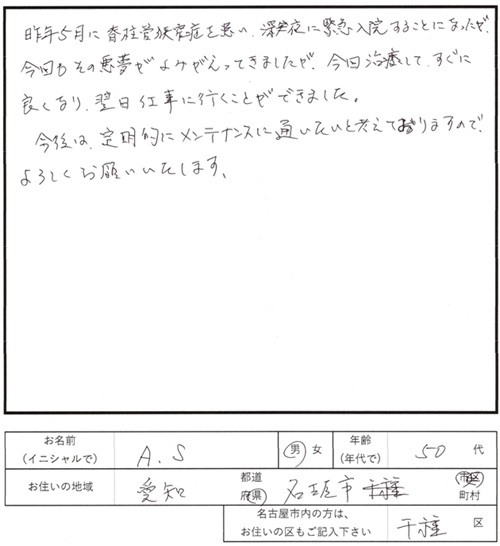 昨年5月に脊柱管狭窄症を患い、深夜に緊急入院することになったが、
今回もその悪夢がよみがえってきましたが、今回治療して、すぐに
良くなり、翌日仕事に行くことができました。
今後は、定期的にメンテナンスに通いたいと考えておりますので、
よろしくお願いいたします。
お名前
(イニシャルで) A.S 男 女 年齢
(年代で) 50 代
お住いの地域 愛知 都道
府県 名古屋市 千種 市区
町村
名古屋市内の方は、
お住いの区もご記入下さい 千種 区